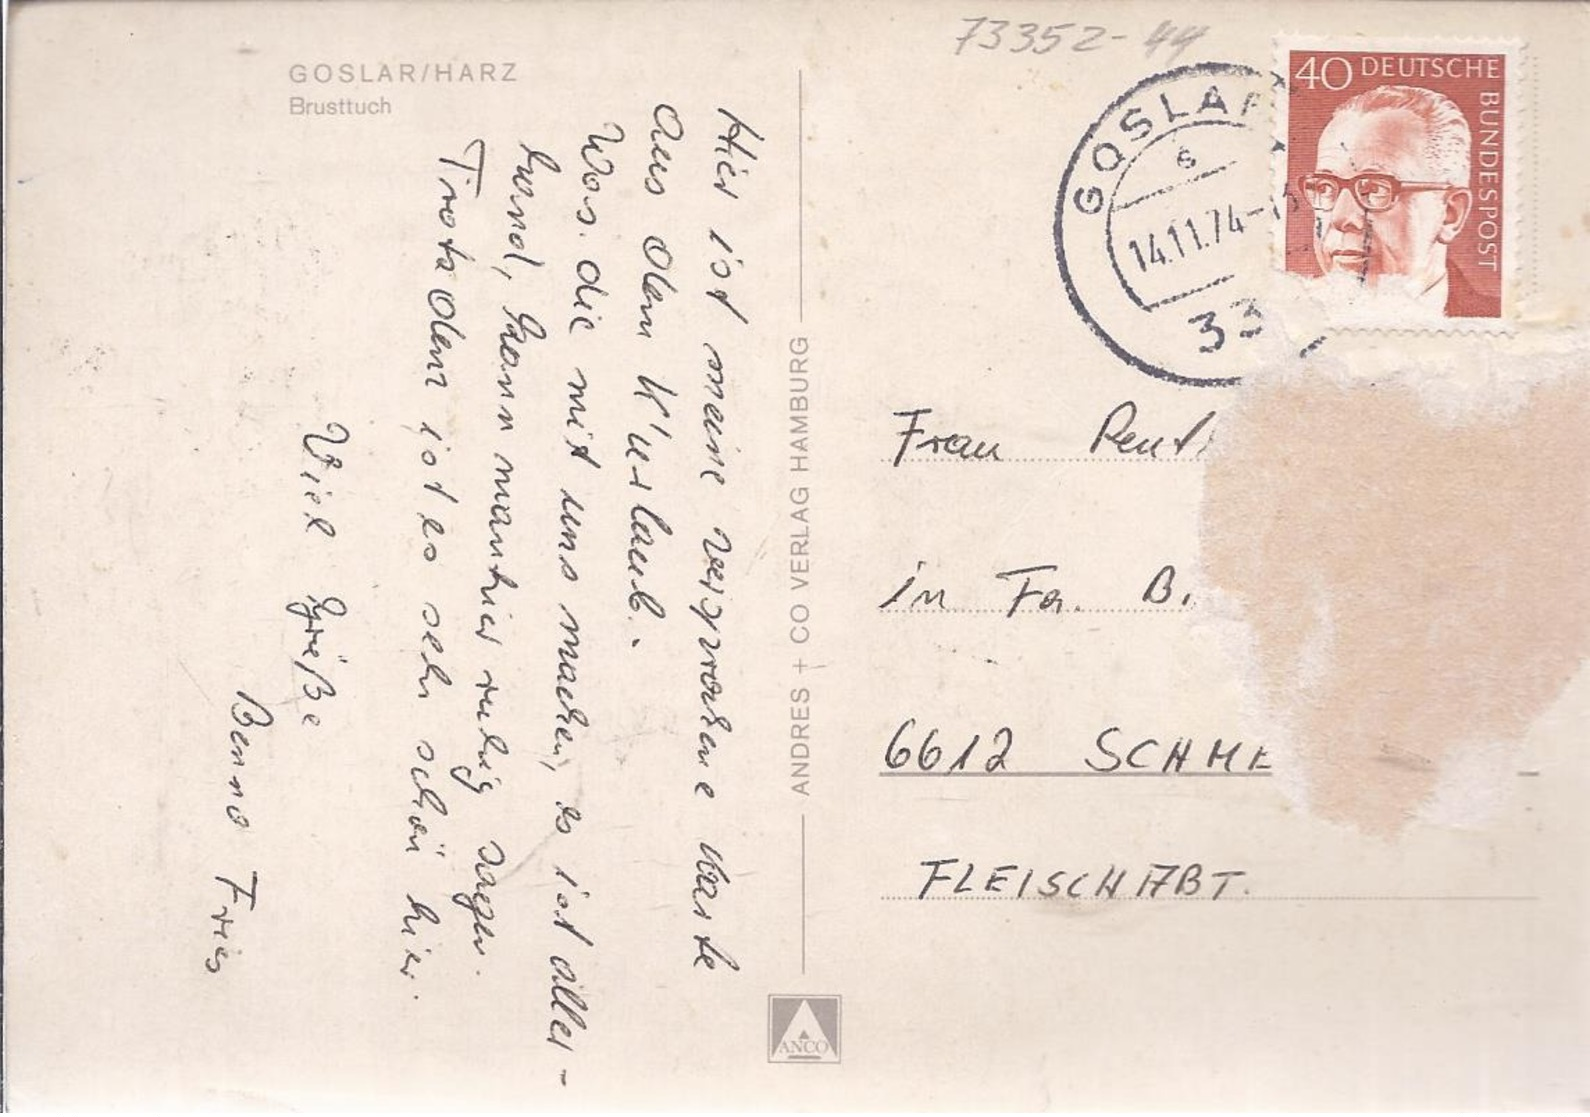 GOSLAR/HARZ
Brusttuch
Hier ist meine versprochene Karte
aus dem K'urlaub.
Was die mit uns machen, es ist aller-
hand, kann man hier ruhig sagen.
Trotzdem ist es sehr schön hier.
Viel Grüße
Benno Fries
ANDRES + CO VERLAG HAMBURG
ANCO
73352-44
GOSLAR
e
14.11.74-15
33
40 DEUTSCHE
BUNDESPOST
Frau
in Fa. B.
6612 SCHME
FLEISCHABT.